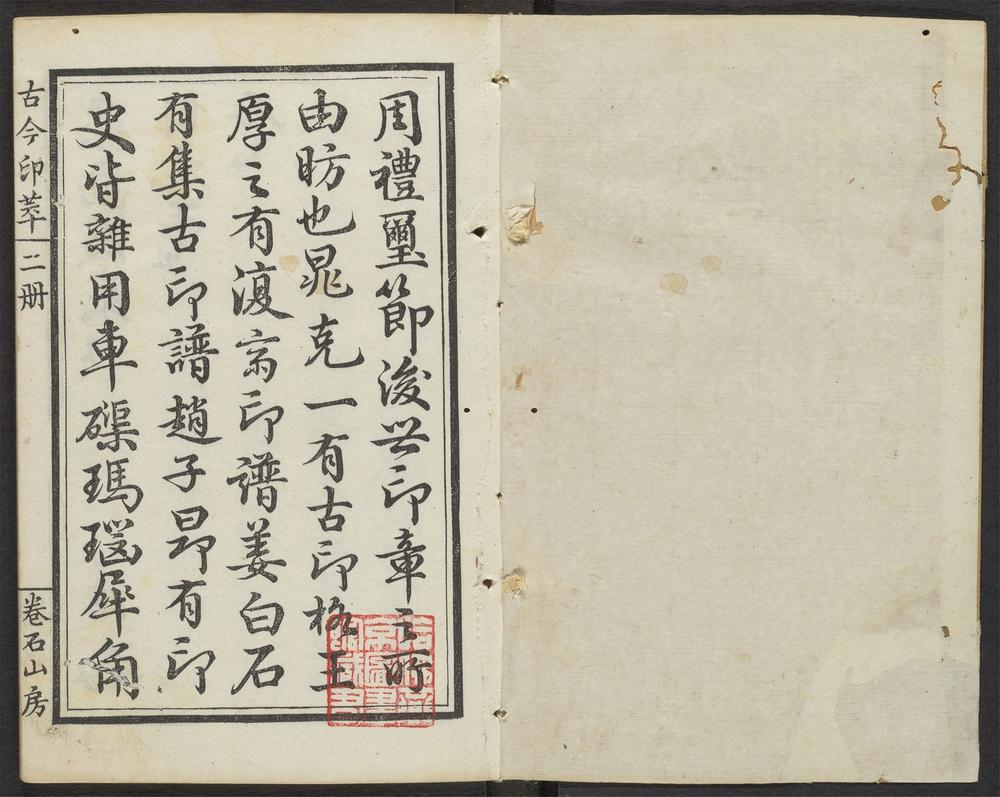 周禮璽節後世印章之所
由昉也晁克一有古印格王
厚之有復齋印譜姜白石
有集古印譜趙子昻有印
史皆雜用車磲瑪瑙犀角
古今印萃 二册
卷石山房